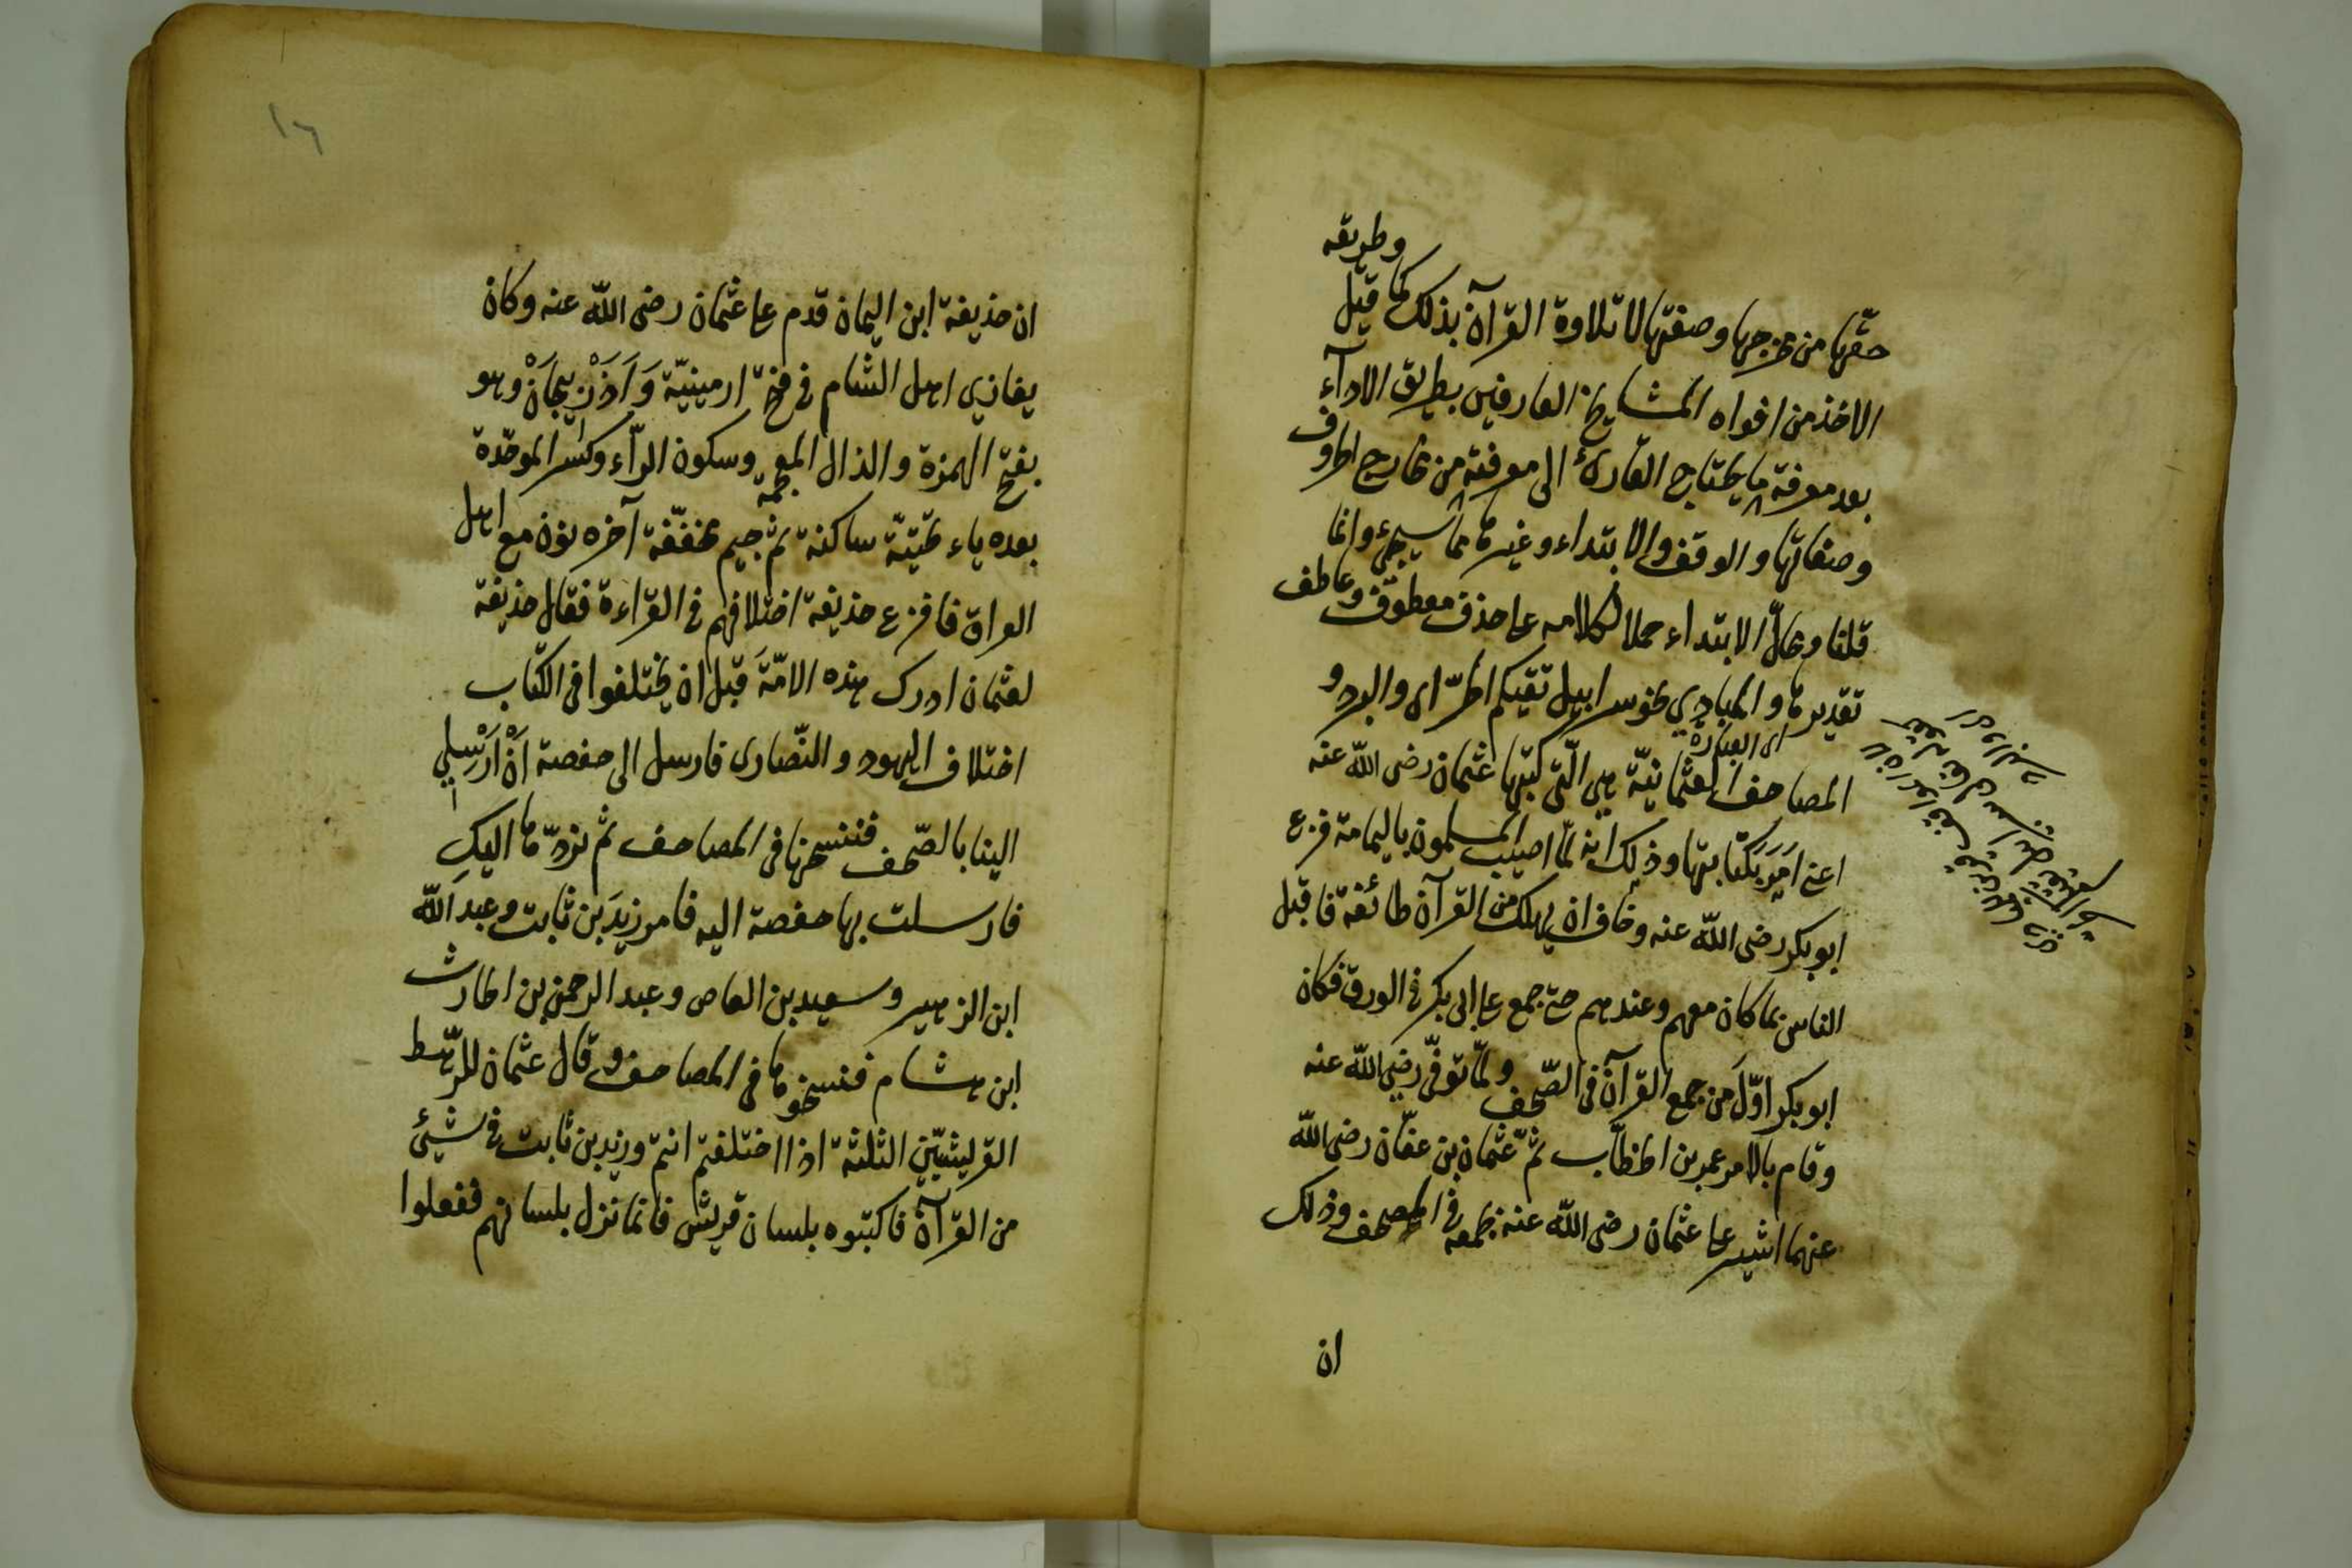 حقّها من مخرجها وصفتها لا تلاوة القرآن بذلك كما قيل وطريقه
الاخذ من افواه المشايخ العارفين بطريق الادآء
بعد معرفة ما يحتاج القارئ الى معرفته من مخارج الحروف
وصفاتها والوقف والابتداء وغيرها مما سيجئ وانما
قلنا ومحالّ الابتداء حملا لكلامه على حذف معطوف وعاطف
تقديرها والمبادي نحو سرابيل تقيكم الحرّ اى والبرد و
اى العبارة
المصاحف العثمانيّة هي الّتي كتبها عثمان رضى اللّه عنه
اعنى امَرَ بكتابتها وذلك انه لمّا اصيب المسلمون باليمامة فزع
ابو بكر رضى اللّه عنه وخاف ان يهلك من القرآن طائفة فاقبل
الناس بما كان معهم وعندهم حتى جمع على ابى بكر في الورق فكان
ابو بكر اوّل من جمع القرآن فى الصّحف ولمّا توفّى رضى اللّه عنه
وقام بالامر عمر بن الخطّاب ثمّ عثمان بن عفّان رضى اللّه
عنهما اشير على عثمان رضى اللّه عنه بجمعه في المصحف وذلك
ان
١٦
ان حذيفة ابن اليمان قدم على عثمان رضى اللّه عنه وكان
يغازي اهل الشام في فتح ارمينيّة وَاَذَرْبِيجَانْ وهو
بفتح الهمزة والذال المعجمة وسكون الرّاء وكسر الموحّدة
بعده ياء تحتيّة ساكنة ثم جيم مخففّة آخره نون مع اهل
العراق فافزع حذيفة اختلافهم في القراءة فقال حذيفة
لعثمان ادرك هذه الامّةَ قبل ان يختلفوا فى الكتاب
اختلاف اليهود والنّصارى فارسل الى حفصة اَنْ اَرْسِلي
الينا بالصّحف فننسخها فى المصاحف ثم نردّها اليكِ
فارسلت بها حفصة اليه فامر زيدَ بن ثابت وعبدَ اللّه
ابن الزهير وسعيد بن العاص وعبد الرحمن بن الحارث
ابن هشام فنسخوها فى المصاحف وقال عثمان للرّهط
القرليشيّين الثلثة اذا اختلفتم انتم وزيد بن ثابت في شيئ
من القرآن فاكتبوه بلسان قريش فانما نزل بلسانهم ففعلوا